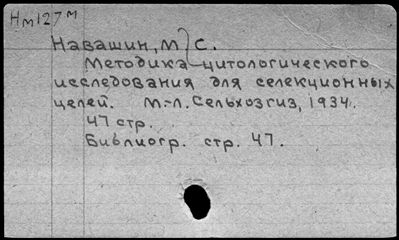 Нм127м
Навашин, М. С.
Методика цитологического
исследования для селекционных
целей. М.-Л. Сельхозгиз, 1934.
47 стр.
Библиогр. стр. 47.